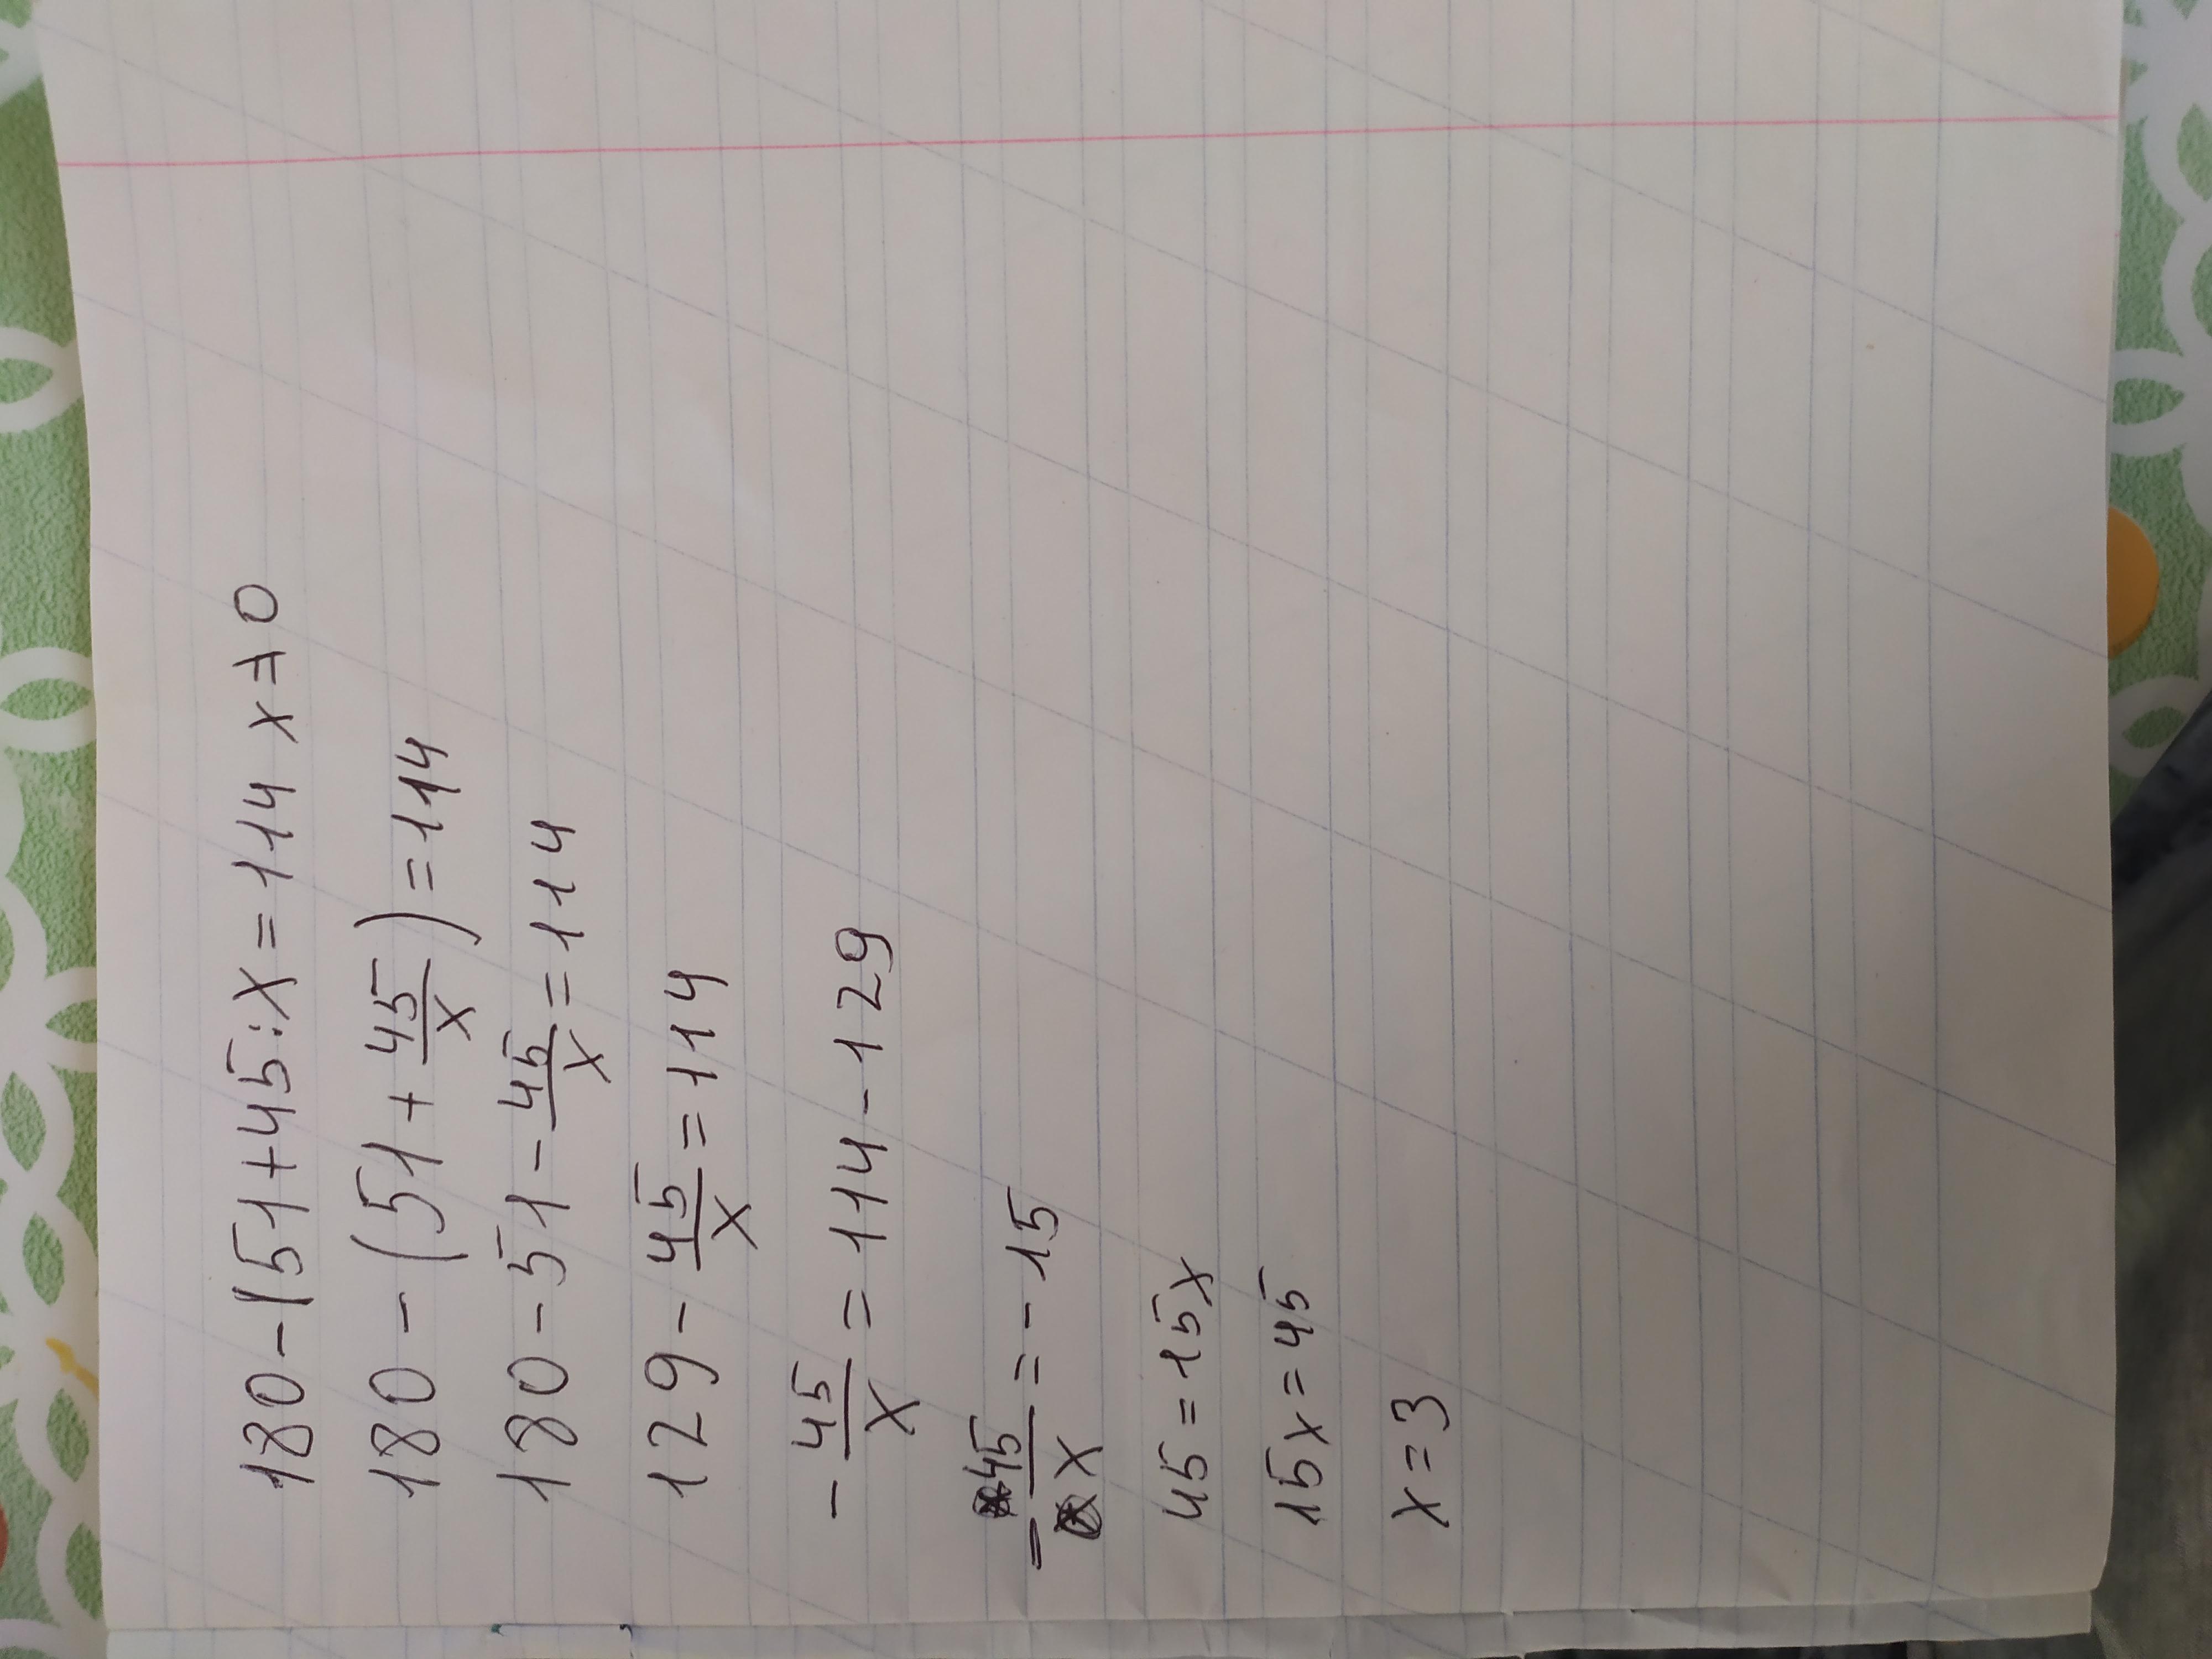 180-(51+45:x=114 x≠0
180-(51+45/x)=114
180-51-45/x=114
129-45/x=114
-45/x=114-129
-45/x=-15
45=15x
15x=45
x=3